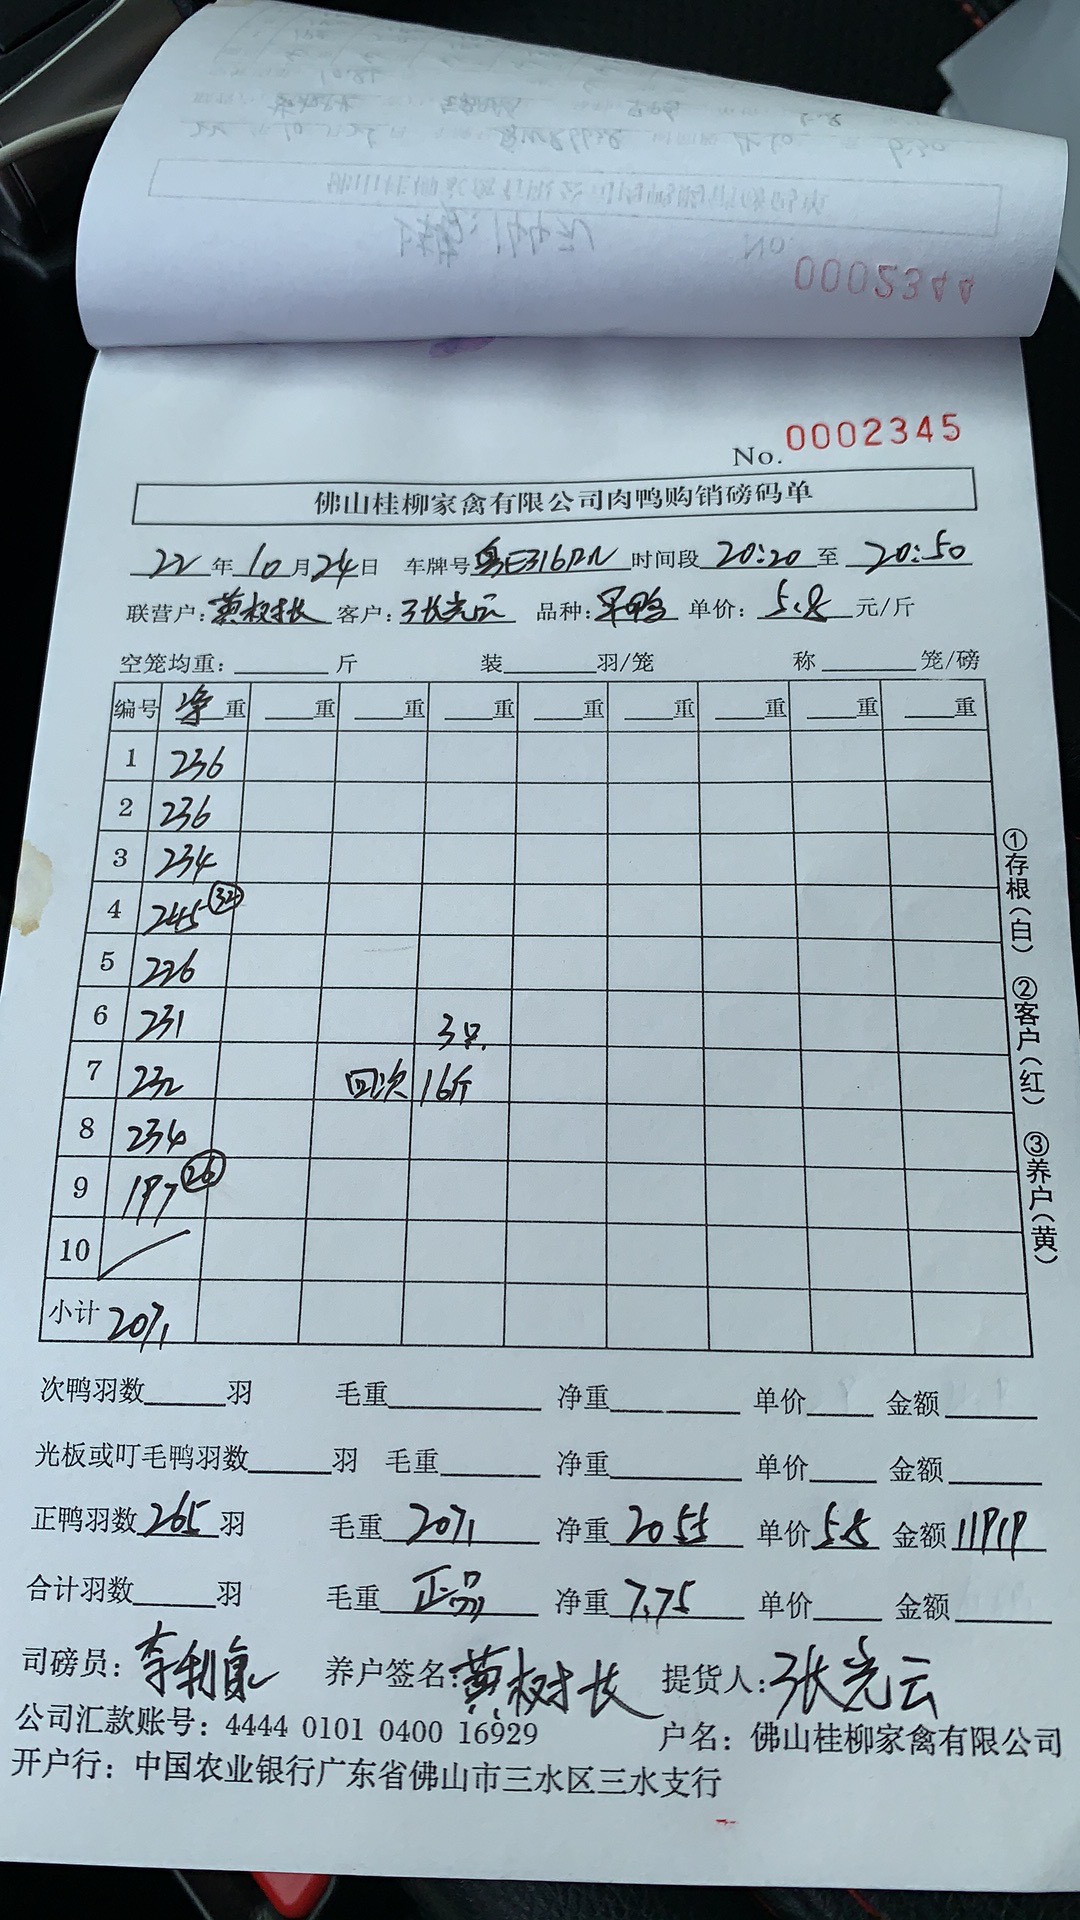 0002344
No. 0002345
佛山桂柳家禽有限公司肉鸭购销磅码单
22年10月24日 车牌号粤E316 时间段20:20至20:50
联营户:黄树长 客户:张光云 品种:旱鸭 单价:5.8元/斤
空笼均重:____斤 装____羽/笼 称____笼/磅
编号 净重 __重 __重 __重 __重 __重 __重 __重 __重
1 236
2 236
3 234
4 245 32
5 226
6 231 3只
7 232 回次 16斤
8 234
9 197 26
10 /
小计 2071
①存根(白) ②客户(红) ③养户(黄)
次鸭羽数____羽 毛重____ 净重____ 单价____ 金额____
光板或叮毛鸭羽数____羽 毛重____ 净重____ 单价____ 金额____
正鸭羽数265羽 毛重2071 净重2055 单价5.8 金额11919
合计羽数____羽 毛重正品 净重7.75 单价____ 金额____
司磅员:李利 养户签名:黄树长 提货人:张光云
公司汇款账号:4444 0101 0400 16929 户名:佛山桂柳家禽有限公司
开户行:中国农业银行广东省佛山市三水区三水支行